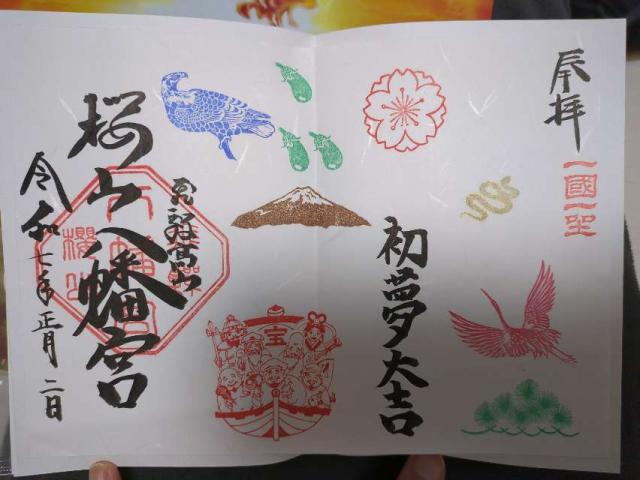 奉拝
一國一社
初夢大吉
宝
飛騨高山
桜山八幡宮
令和七年正月二日